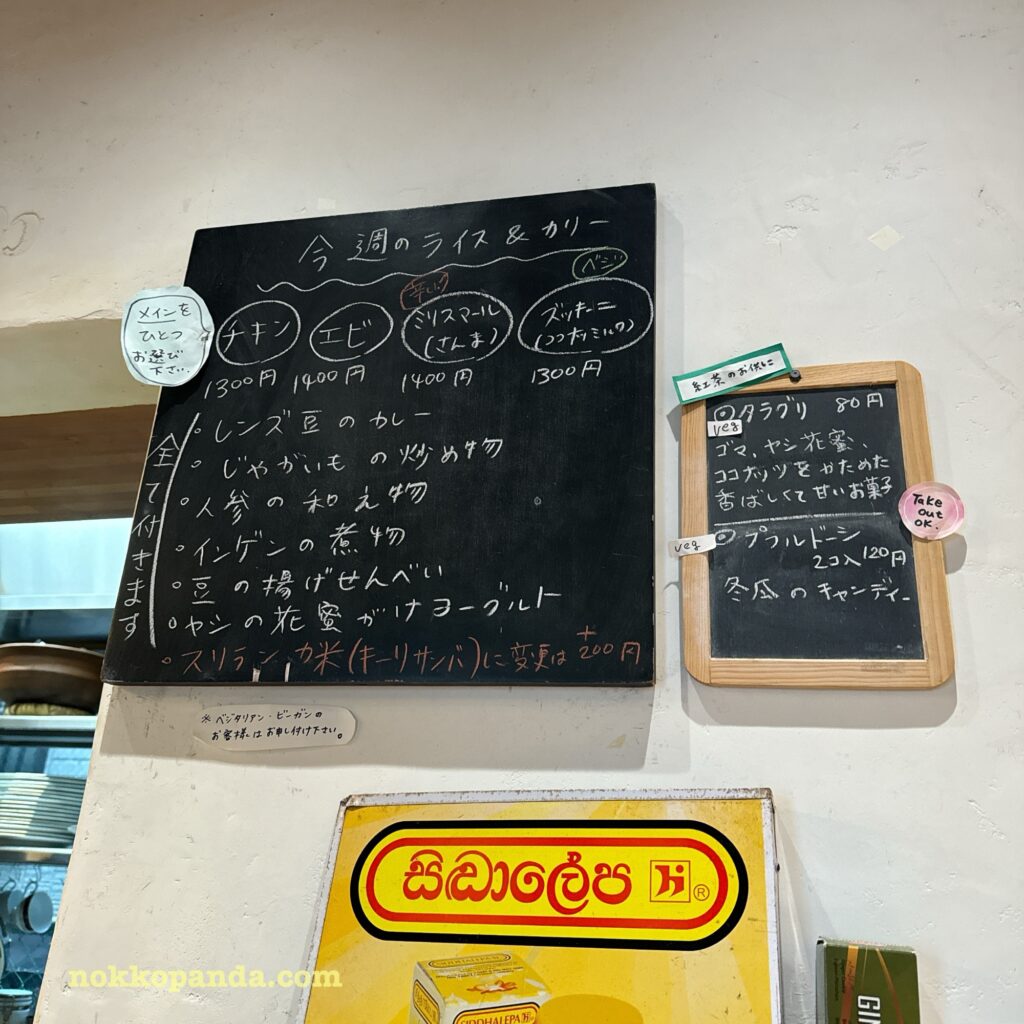 今週のライス&カリー
メインを
ひとつ
お選び
下さい.
チキン
1300円
エビ
1400円
辛い!
ミリスマール
(さんま)
1400円
ベジ
ズッキーニ
(ココナッツミルク)
1300円
全て付きます
。レンズ豆のカレー
。じゃがいもの炒め物
。人参の和え物
。インゲンの煮物
。豆の揚げせんべい
。ヤシの花蜜がけヨーグルト
。スリランカ米(キーリサンバ)に変更は+200円
※ベジタリアン・ビーガンの
お客様はお申し付け下さい。
紅茶のお供に
◎タラグリ 80円
veg
ゴマ、ヤシ花蜜、
ココナッツをかためた
香ばしくて甘いお菓子
Take
out
OK.
veg
◎プフルドーシ
2コ入120円
冬瓜のキャンディー
සිද්ධාලේප ®
SIDDHALEPA
GIN
nokkopanda.com